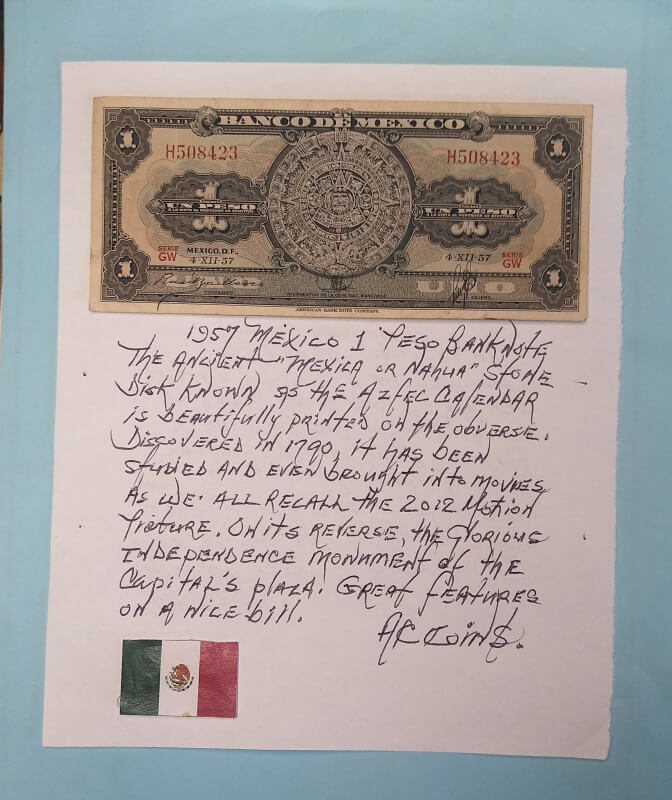 BANCO DE MEXICO
1 1
H508423 H508423
UN PESO UN PESO
SERIE GW MEXICO, D.F., 4·XII·57 4·XII·57 SERIE GW
UNO
CAJERO
AMERICAN BANK NOTE COMPANY.
1 1
1957 MEXICO 1 PESO BANKNOTE
THE ANCIENT "MEXICA OR NAHUA" STONE
DISK KNOWN AS THE AZTEC CALENDAR
is beautifully printed on the obverse.
DISCOVERED IN 1790, it HAS BEEN
studied AND EVEN brought into movies
AS WE ALL RECALL the 2012 Motion
Picture. On its REVERSE, the Glorious
INDEPENDENCE monument of the
Capital's plaza. Great features
on a nice bill.
AC Coins.